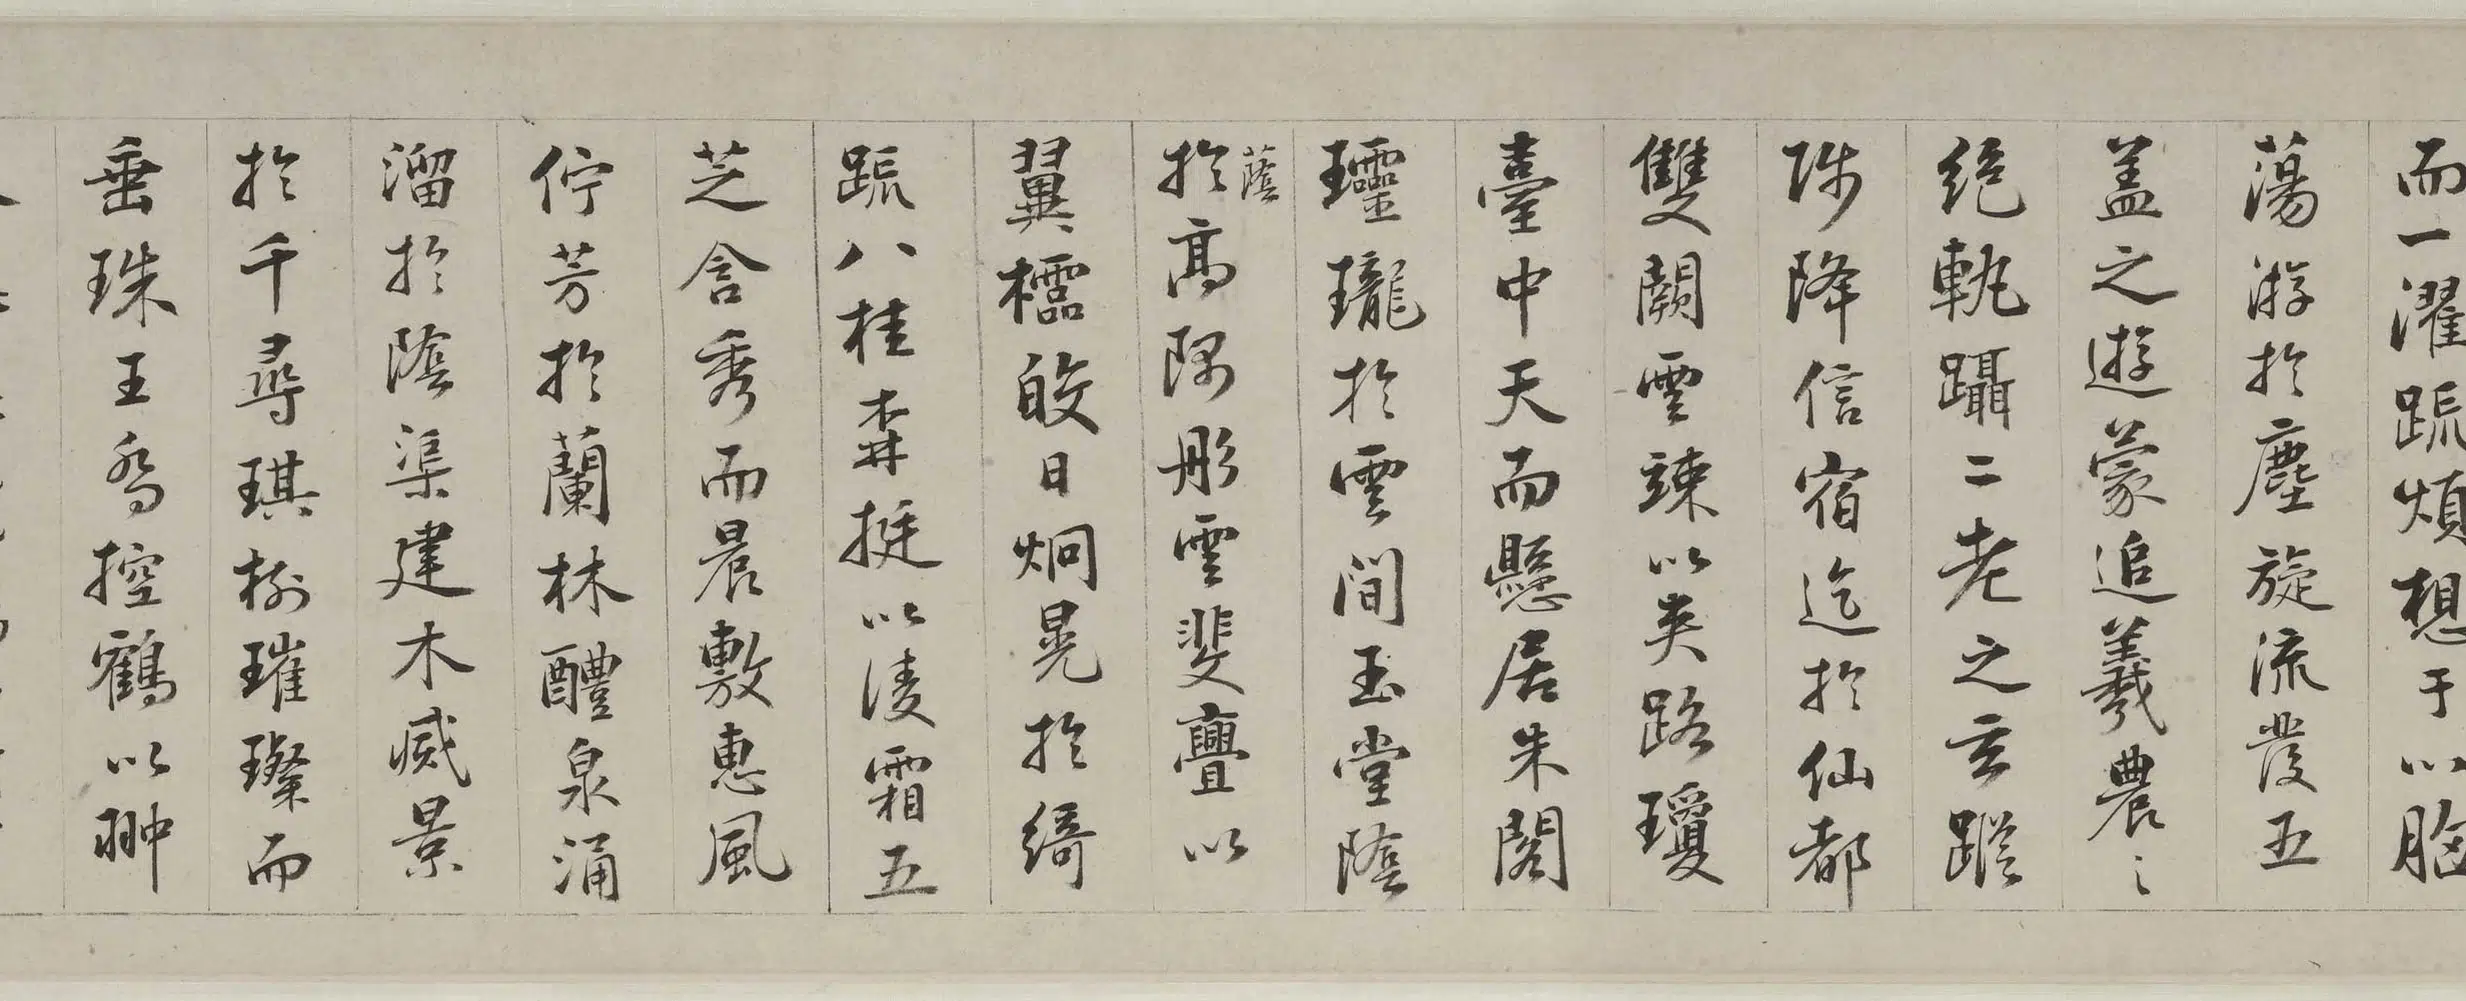 而一濯疏煩想于心胸
蕩游於塵旋流發五
蓋之遊蒙追羲農之
絕軌躡二老之玄蹤
陟降信宿迄於仙都
雙闕雲竦以夾路瓊
臺中天而懸居朱閣
瓏於雲間玉堂蔭
蔭
於高隅彤雲斐亹以
翼櫺皎日炯晃於綺
疏八桂森挺以淩霜五
芝含秀而晨敷惠風
佇芳於蘭林醴泉涌
溜於蔭渠建木滅景
於千尋琪樹璀璨而
垂珠王喬控鶴以翀